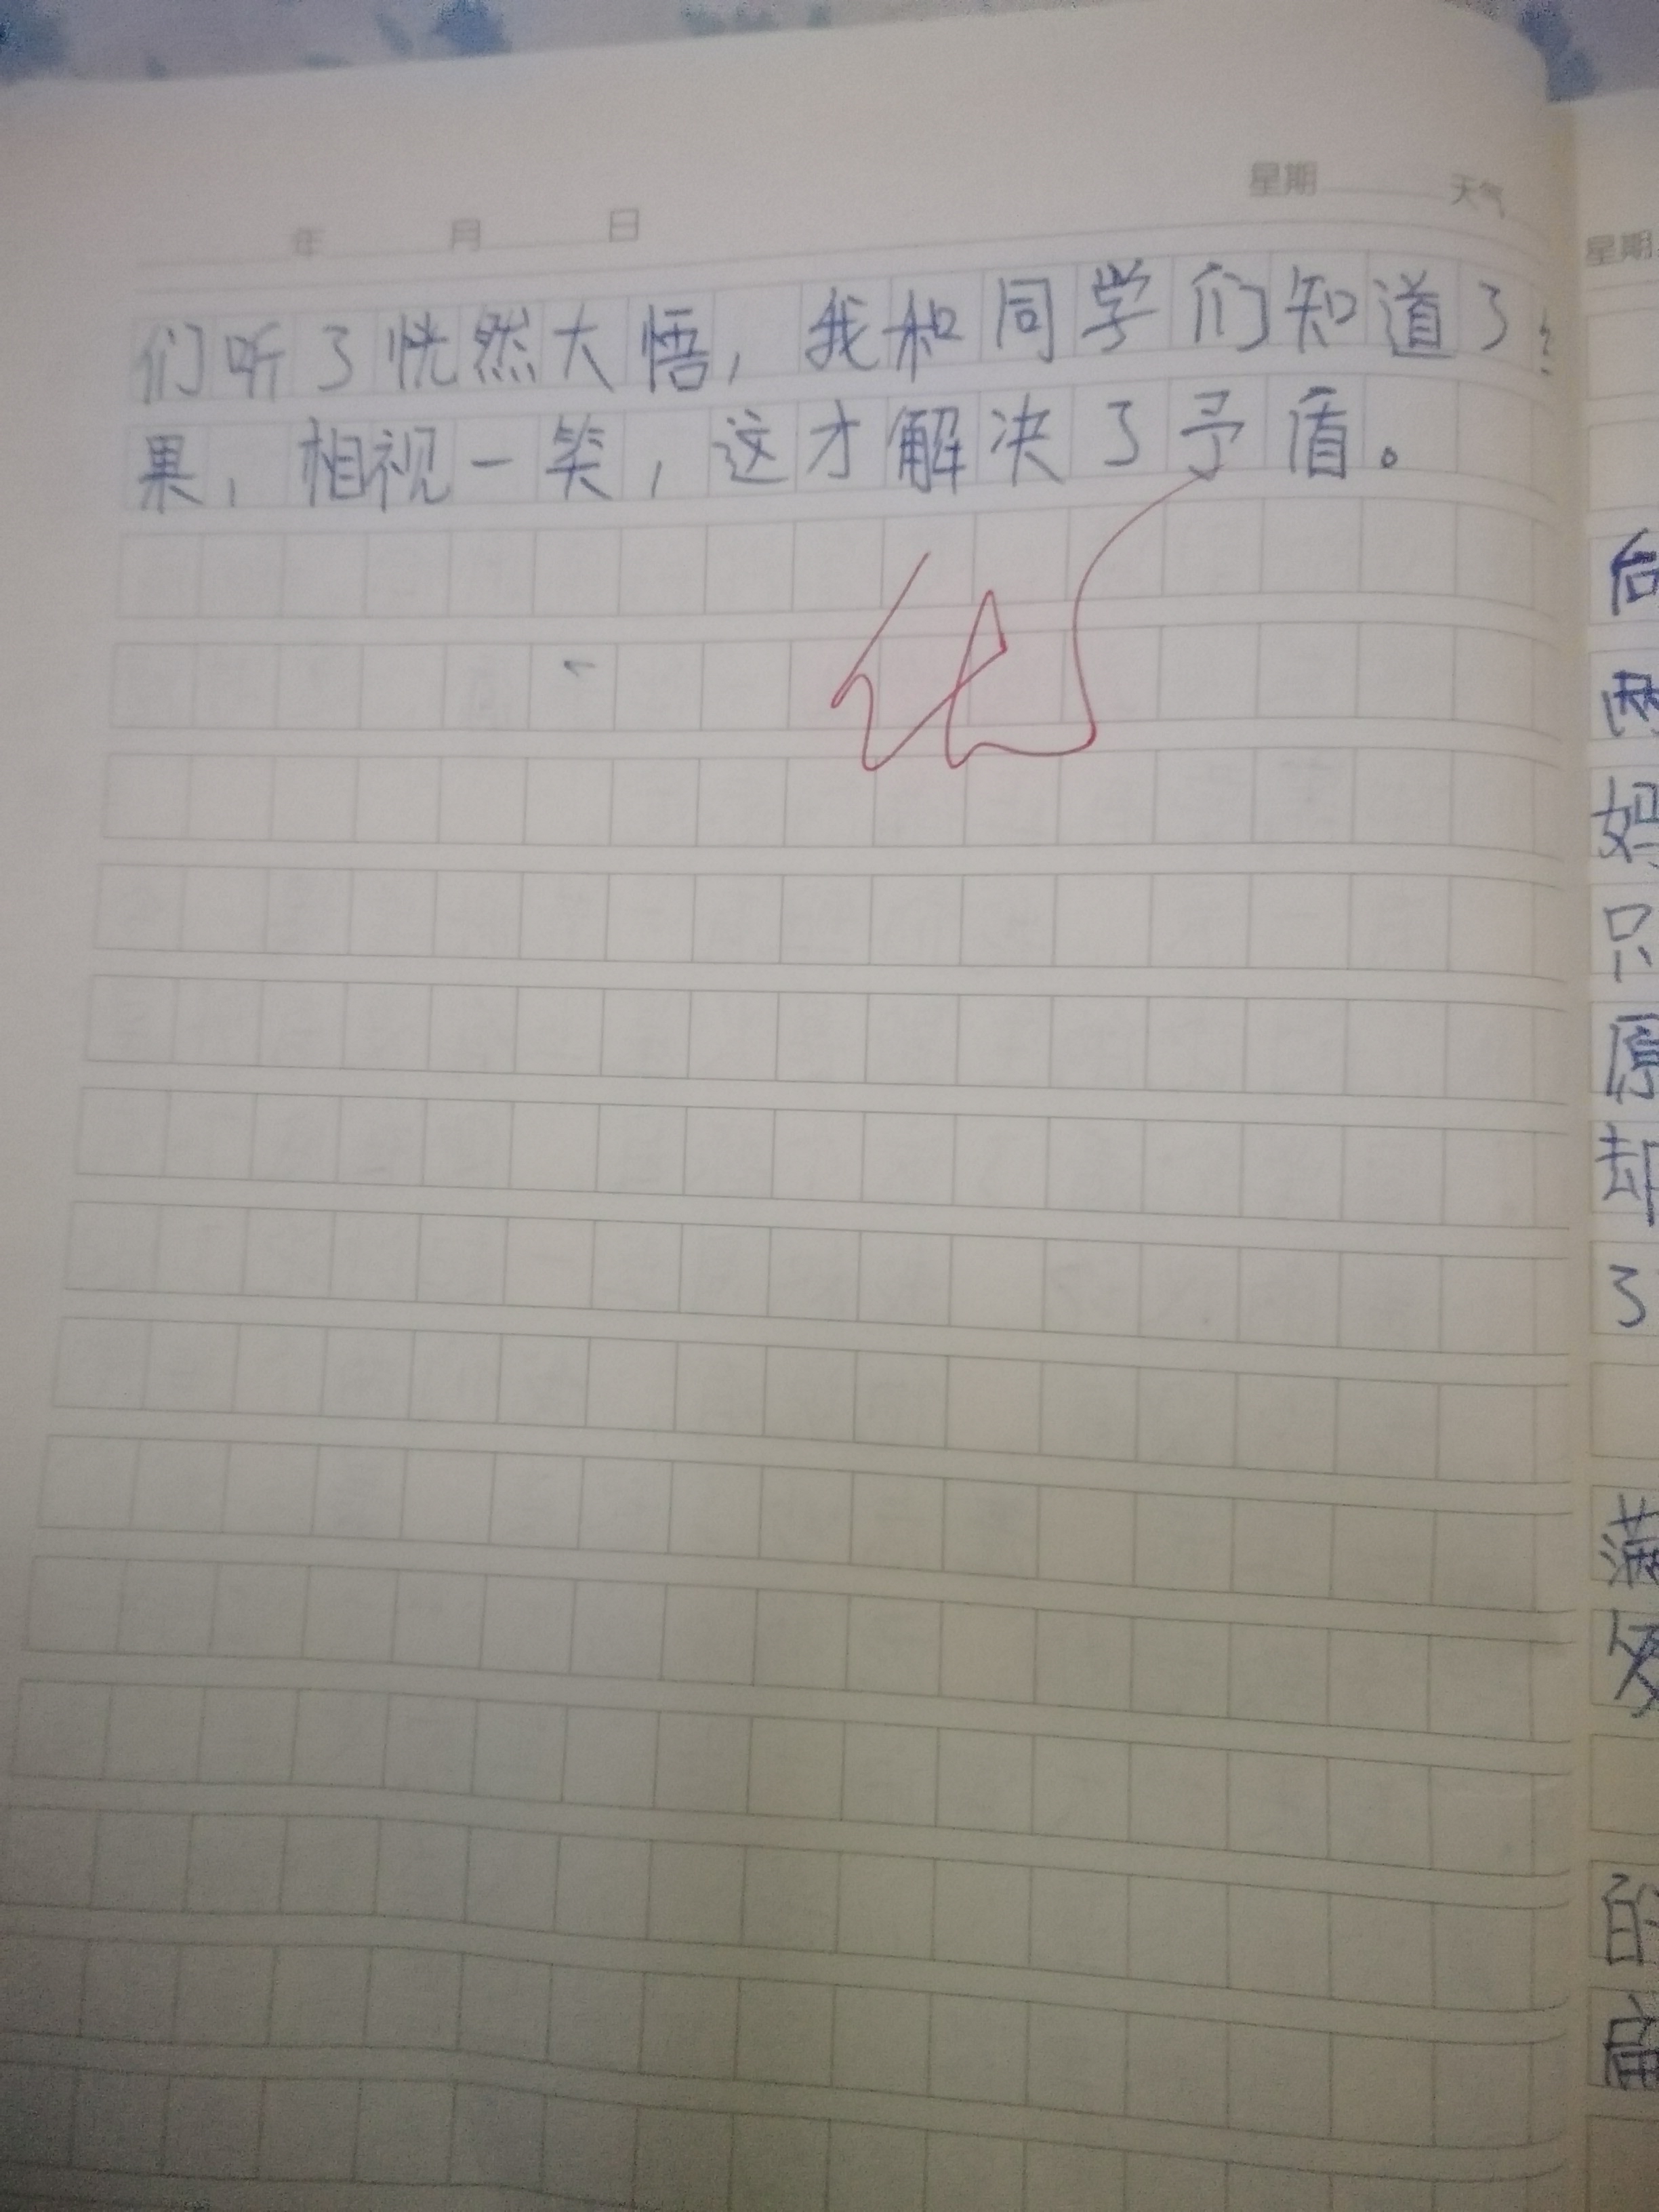 年 月 日 星期 天气
们听了恍然大悟，我和同学们知道了
果，相视一笑，这才解决了矛盾。
星期
台
两
妈
只
原
却
了
满
的